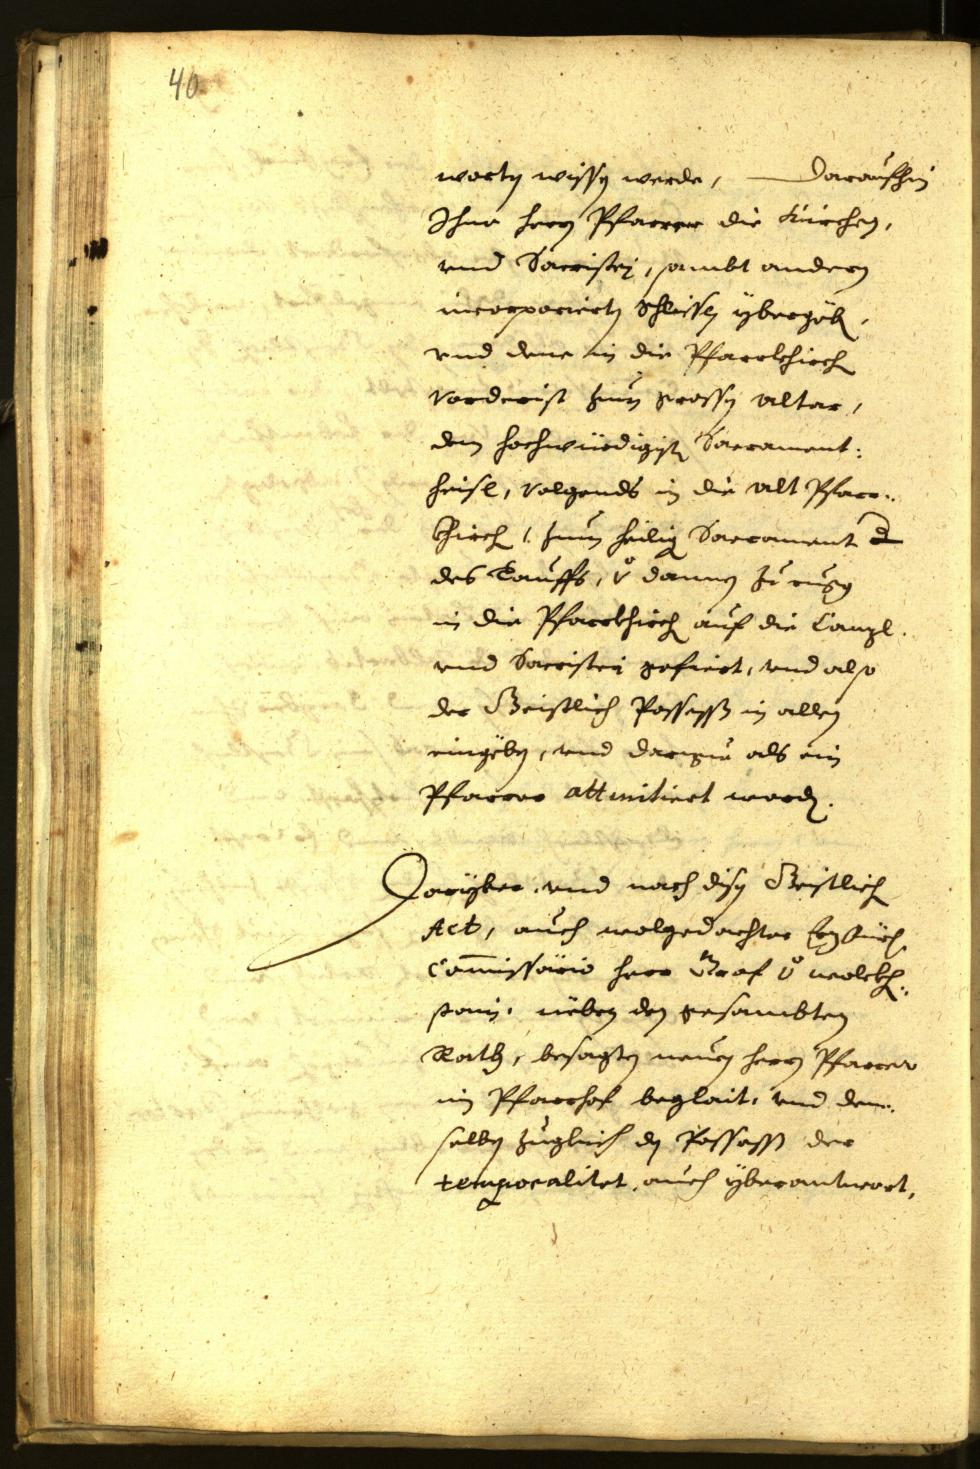 40
worten wissen werde, — Daraufhin
Ihme herrn Pfarrer die Kirchen,
vnd Sacristej, sambt andern
incorporierten Schlissl ybergeben,
vnd dene in die Pfarrkhirch
vorderist zum grossen altar,
dem hochwürdigist Sacrament:
heisl, volgends in die alt Pfarr:
khirch, zum heilig Sacrament
des Tauffs, v dannen zurugg
in die Pfarrkhirch auf die Canzl
vnd Sacristej gefiert, vnd also
der Geistlich Possess in allen
eingeben, vnd darzue als ein
Pfarrer attmitiert worden.
Darüber vnd nach disen Geistlich
Act, auch wolgedachter
Commissario herr Graf v Wolckh:
stain, neben den gesambten
Rath, besagten neuen herrn Pfarrer
in Pfarrhof beglait, vnd dem:
selben zugleich den Possess der
temporalitet auch yberantwort,